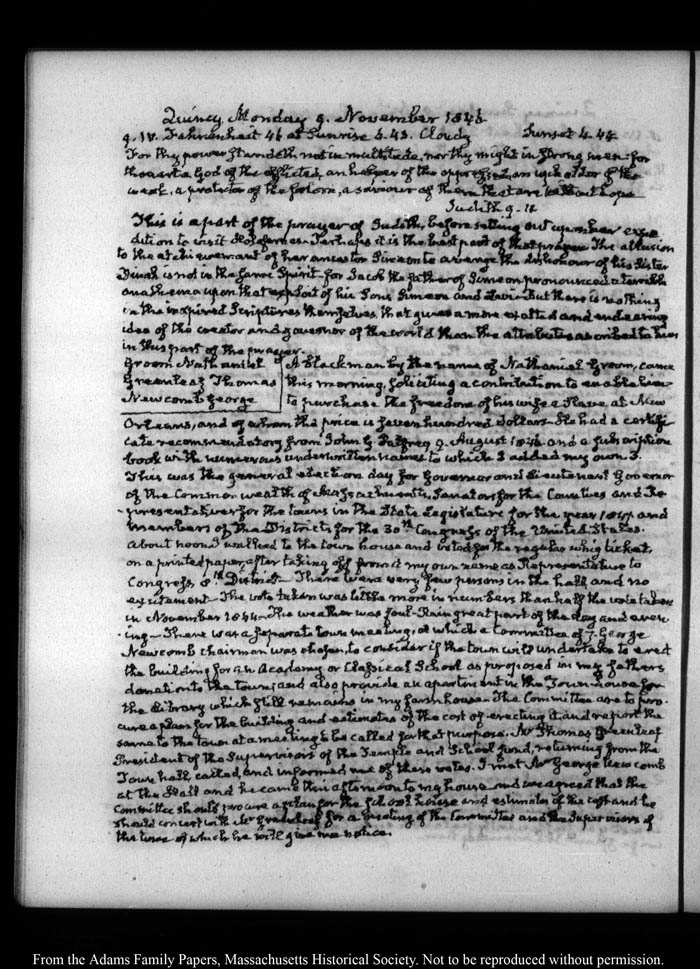 Quincy, Monday 9. November 1846
9. IV. Fahrenheit 46 at Sunrise 6.43. Cloudy Sunset 4.44
For thy power standeth not in multitude, nor thy might in strong men for
thou art a God of the afflicted, an helper of the oppressed, an upholder of the
weak, a protector of the forlorn, a saviour of them that are without hope
Judith 9. 11
This is a part of the prayer of Judith, before setting out upon her expe
dition to visit Holofernes. Perhaps it is the best part of that prayer. The allusion
to the atchievement of her ancestor Simeon to avenge the dishonour of his Sister
Dinah is not in the same Spirit for Jacob the father of Simeon pronounced a terrible
anathema upon that exploit of his Sons Simeon and Levi. But there is nothing
in the inspired Scriptures themselves, that gives a more exalted and endearing
idea of the creator and governor of the world than the attributes ascribed to him
in this part of the prayer.
Groom Nathaniel A black man by the name of Nathaniel Groom, came
Greenleaf Thomas this morning, soliciting a contribution to enable him
Newcomb George to purchase the freedom of his wife a Slave, at New
Orleans, and of whom the price is seven hundred dollars. He had a certifi
cate recommendatory from John G. Palfrey 9. August 1846 and a subscription
book with numerous underwritten names to which I added my own 3.
This was the general election day for Governor and Lieutenant Governor
of the Commonwealth of Massachusetts, Senators for the Counties and Re
-presentatives for the towns in the State Legislature for the year 1847 and
members of the Districts for the 30th Congress of the United States.
About noon I walked to the town house and voted for the regular whig ticket,
on a printed paper, after taking off from it my own name as Representative to
Congress, 8th District. There were very few persons in the hall and no
excitement. The vote taken was little more in numbers than half the vote taken
in November 1844. The weather was foul. Rain great part of the day and even
-ing. There was a separate town meeting, at which a Committee of 7. George
Newcomb chairman was chosen, to consider if the town will undertake to erect
the building for an Academy or Classical School as proposed in my fathers
donation to the town; and also provide an apartment in the Town-house for
the Library which still remains in my farm house. The Committee are to pro
cure a plan for the building and estimates of the cost of erecting it and report the
same to the town at a meeting to be called for that purpose. Mr Thomas Greenleaf
President of the Supervisors of the Temple and School fund, returning from the
Town hall, called, and informed me of these votes. I met Mr George Newcomb
at the Hall and he came this afternoon to my house and we agreed that the
Committee should procure a plan for the school house and estimates of the cost and he
should concert with Mr Greenleaf for a meeting of the Committee and the Supervisors of
the time of which he will give me notice.
From the Adams Family Papers, Massachusetts Historical Society. Not to be reproduced without permission.